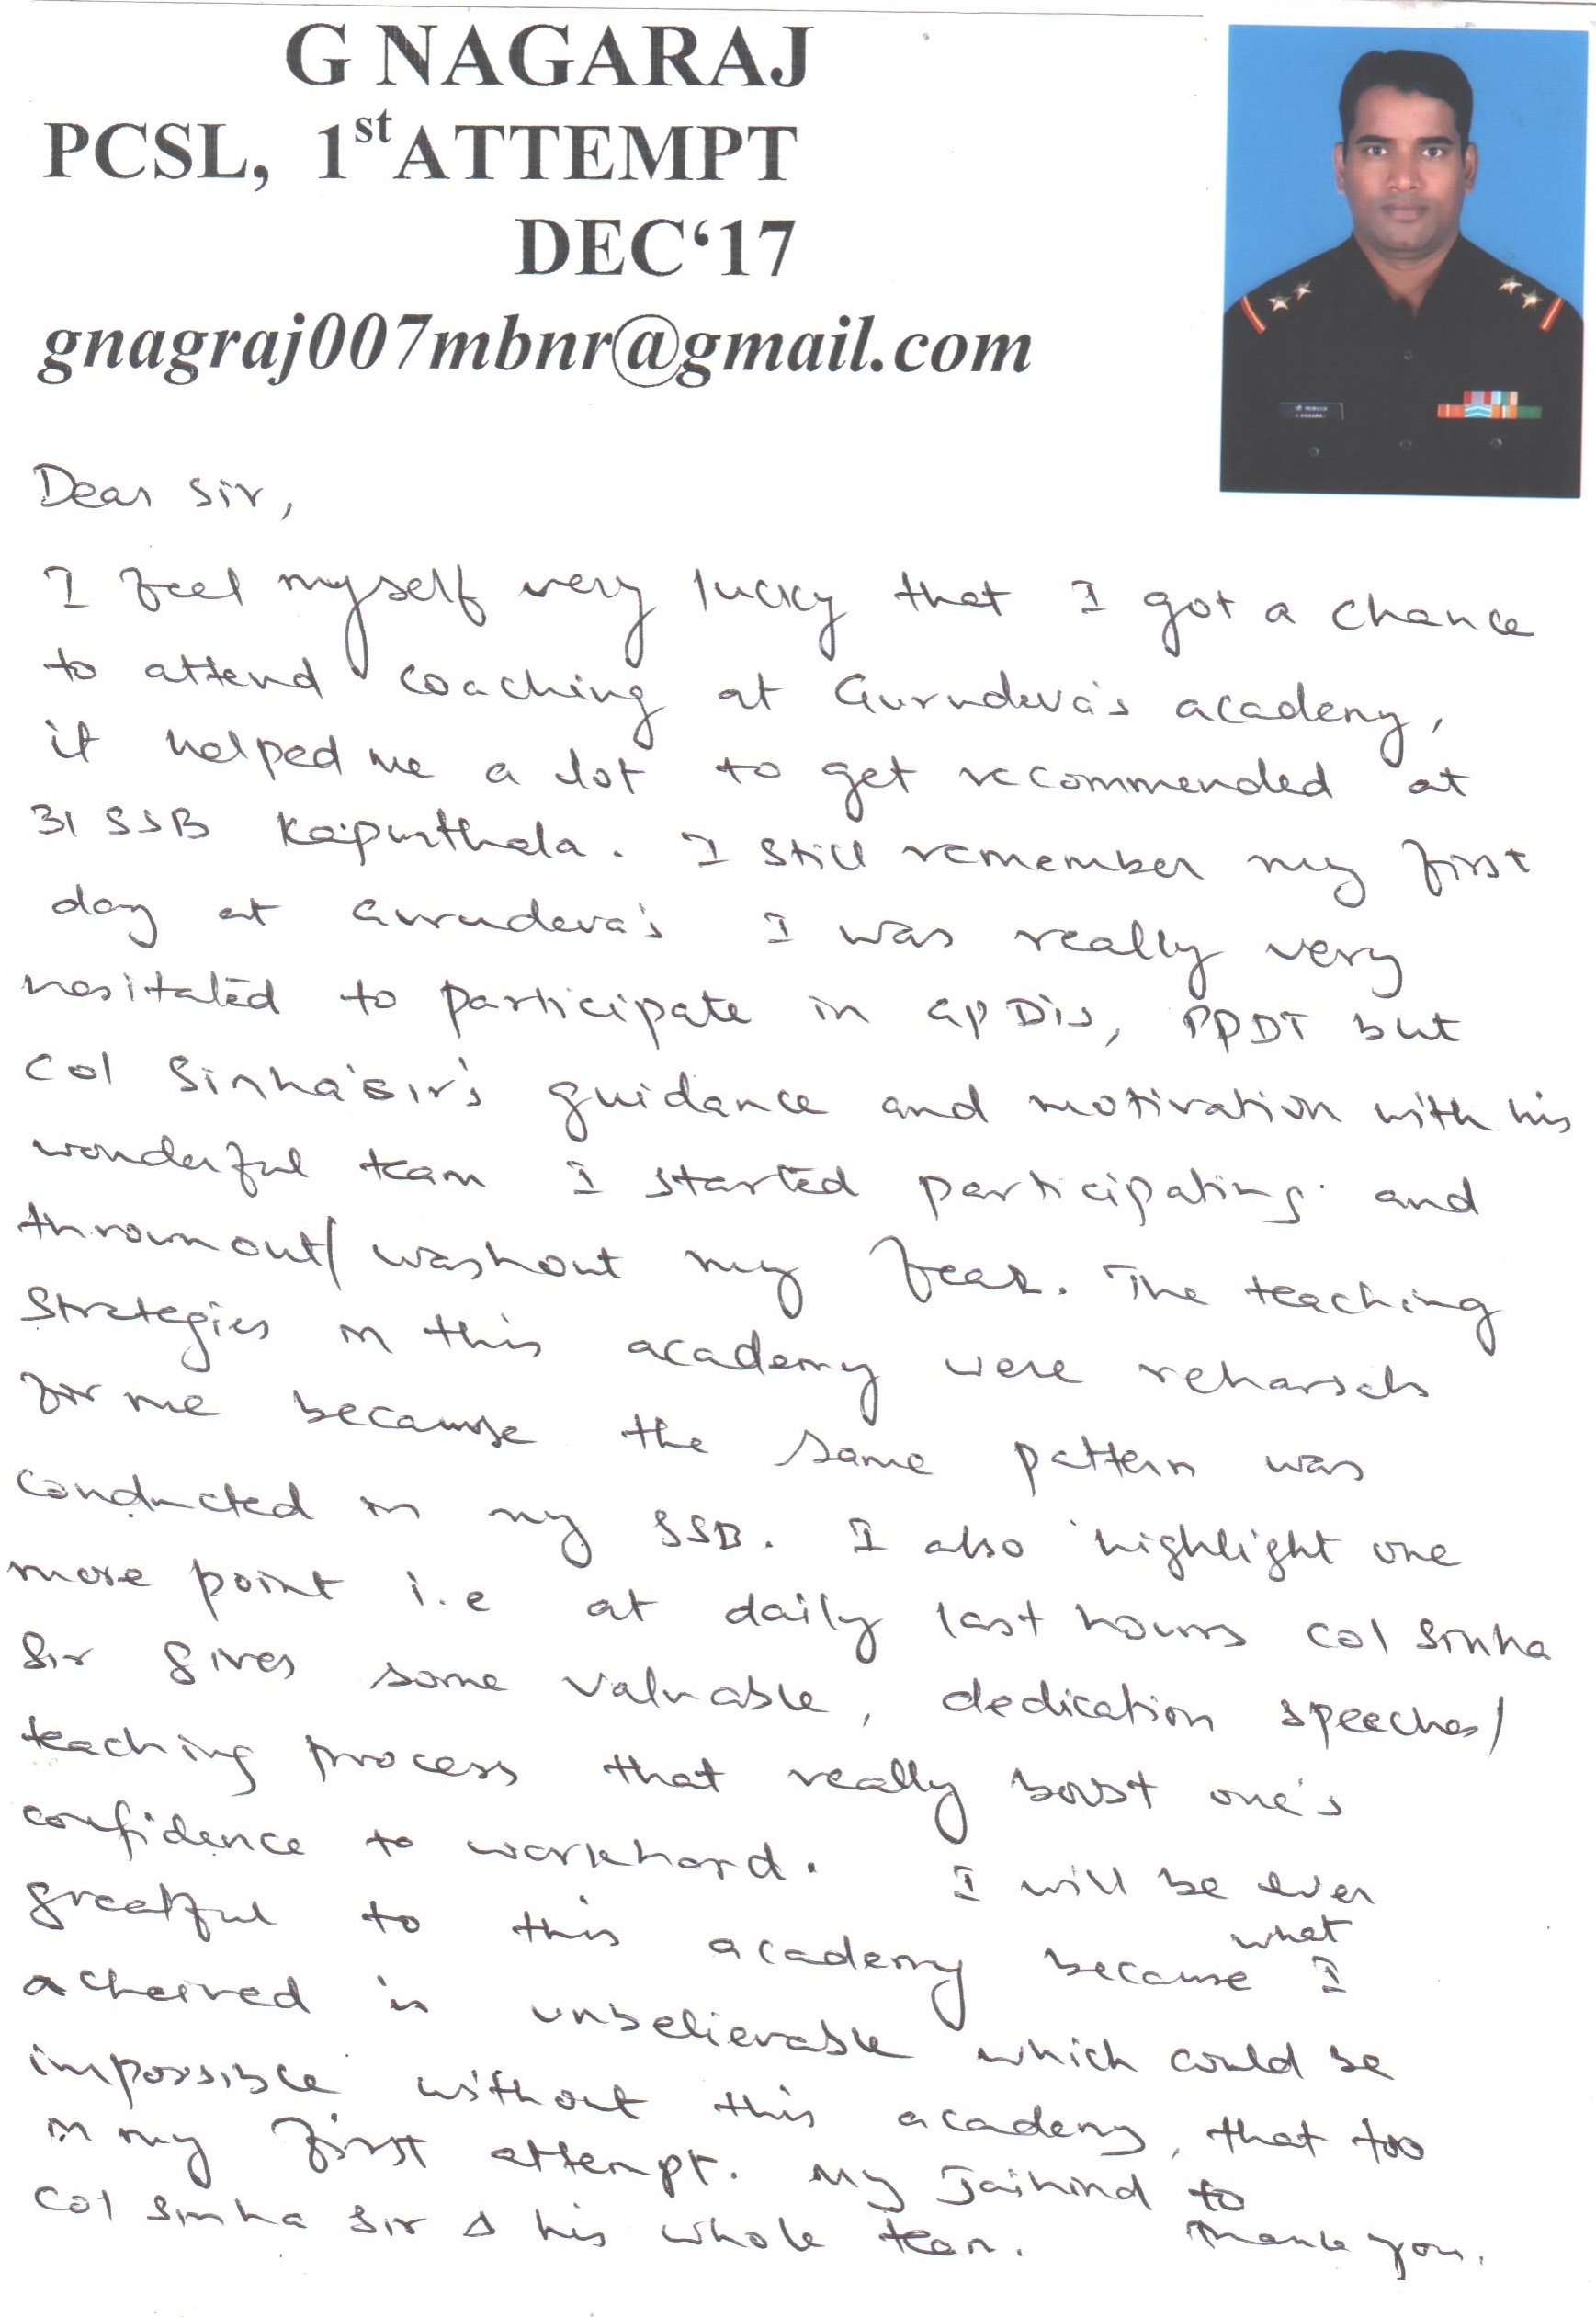 G NAGARAJ
PCSL, 1st ATTEMPT
DEC‘17
gnagraj007mbnr@gmail.com
Dear sir,
I feel myself very lucky that I got a chance
to attend coaching at Gurudeva's academy,
it helped me a lot to get recommended at
31 SSB Kapurthala. I still remember my first
day at Gurudeva's I was really very
hesitated to participate in GP Dis, PPDT but
Col Sinha's sir's guidance and motivation with his
wonderful team I started participating and
thrown out/ washout my fear. The teaching
Strategies in this academy were reharsals
for me because the same pattern was
conducted in my SSB. I also highlight one
more point i.e at daily last hours Col Sinha
Sir gives some valuable, dedication speeches/
teaching process that really boost one's
confidence to workhard. I will be ever
greatful to this academy because what I
acheived is unbelievable which could be
impossible without this academy, that too
in my first attempt. My Jaihind to
Col Sinha Sir & his whole team. Thank you.